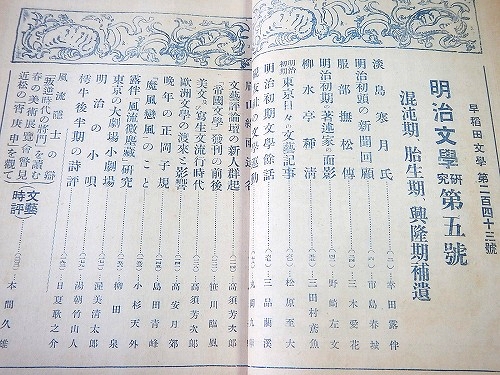 早稻田文學 第二百四十三號
明治文學研究 第五號
混沌期、胎生期、興隆期補遺
淡島寒月氏……(二)幸田露伴
明治初頭の新聞回顧……市島春城
服部撫松傳……三木愛花
明治初期の著述家の面影……野崎左文
柳水亭種清……三田村鳶魚
明治初期 東京日々の文藝記事……松原至大
明治初期文學餘話……三品藺溪
文藝評論壇の新人群起……高須芳次郎
「帝國文學」發刊の前後……笹川臨風
美文、寫生文流行時代……高須芳次郎
歐洲文學の渡來と影響……高安月郊
晩年の正岡子規……島田青峰
「魔風戀風」のこと……小杉天外
露伴「風流微塵藏」研究……柳田泉
東京の大劇場小劇場……渥美清太郎
明治の小唄……湯朝竹山人
樗牛後半期の詩評……日夏耿之介
風流魂士の辯
「叛逆時代の將門」を讀む
春の美術展覽會瞥見
近松の「宵庚申」を觀て
文藝時評……本間久雄